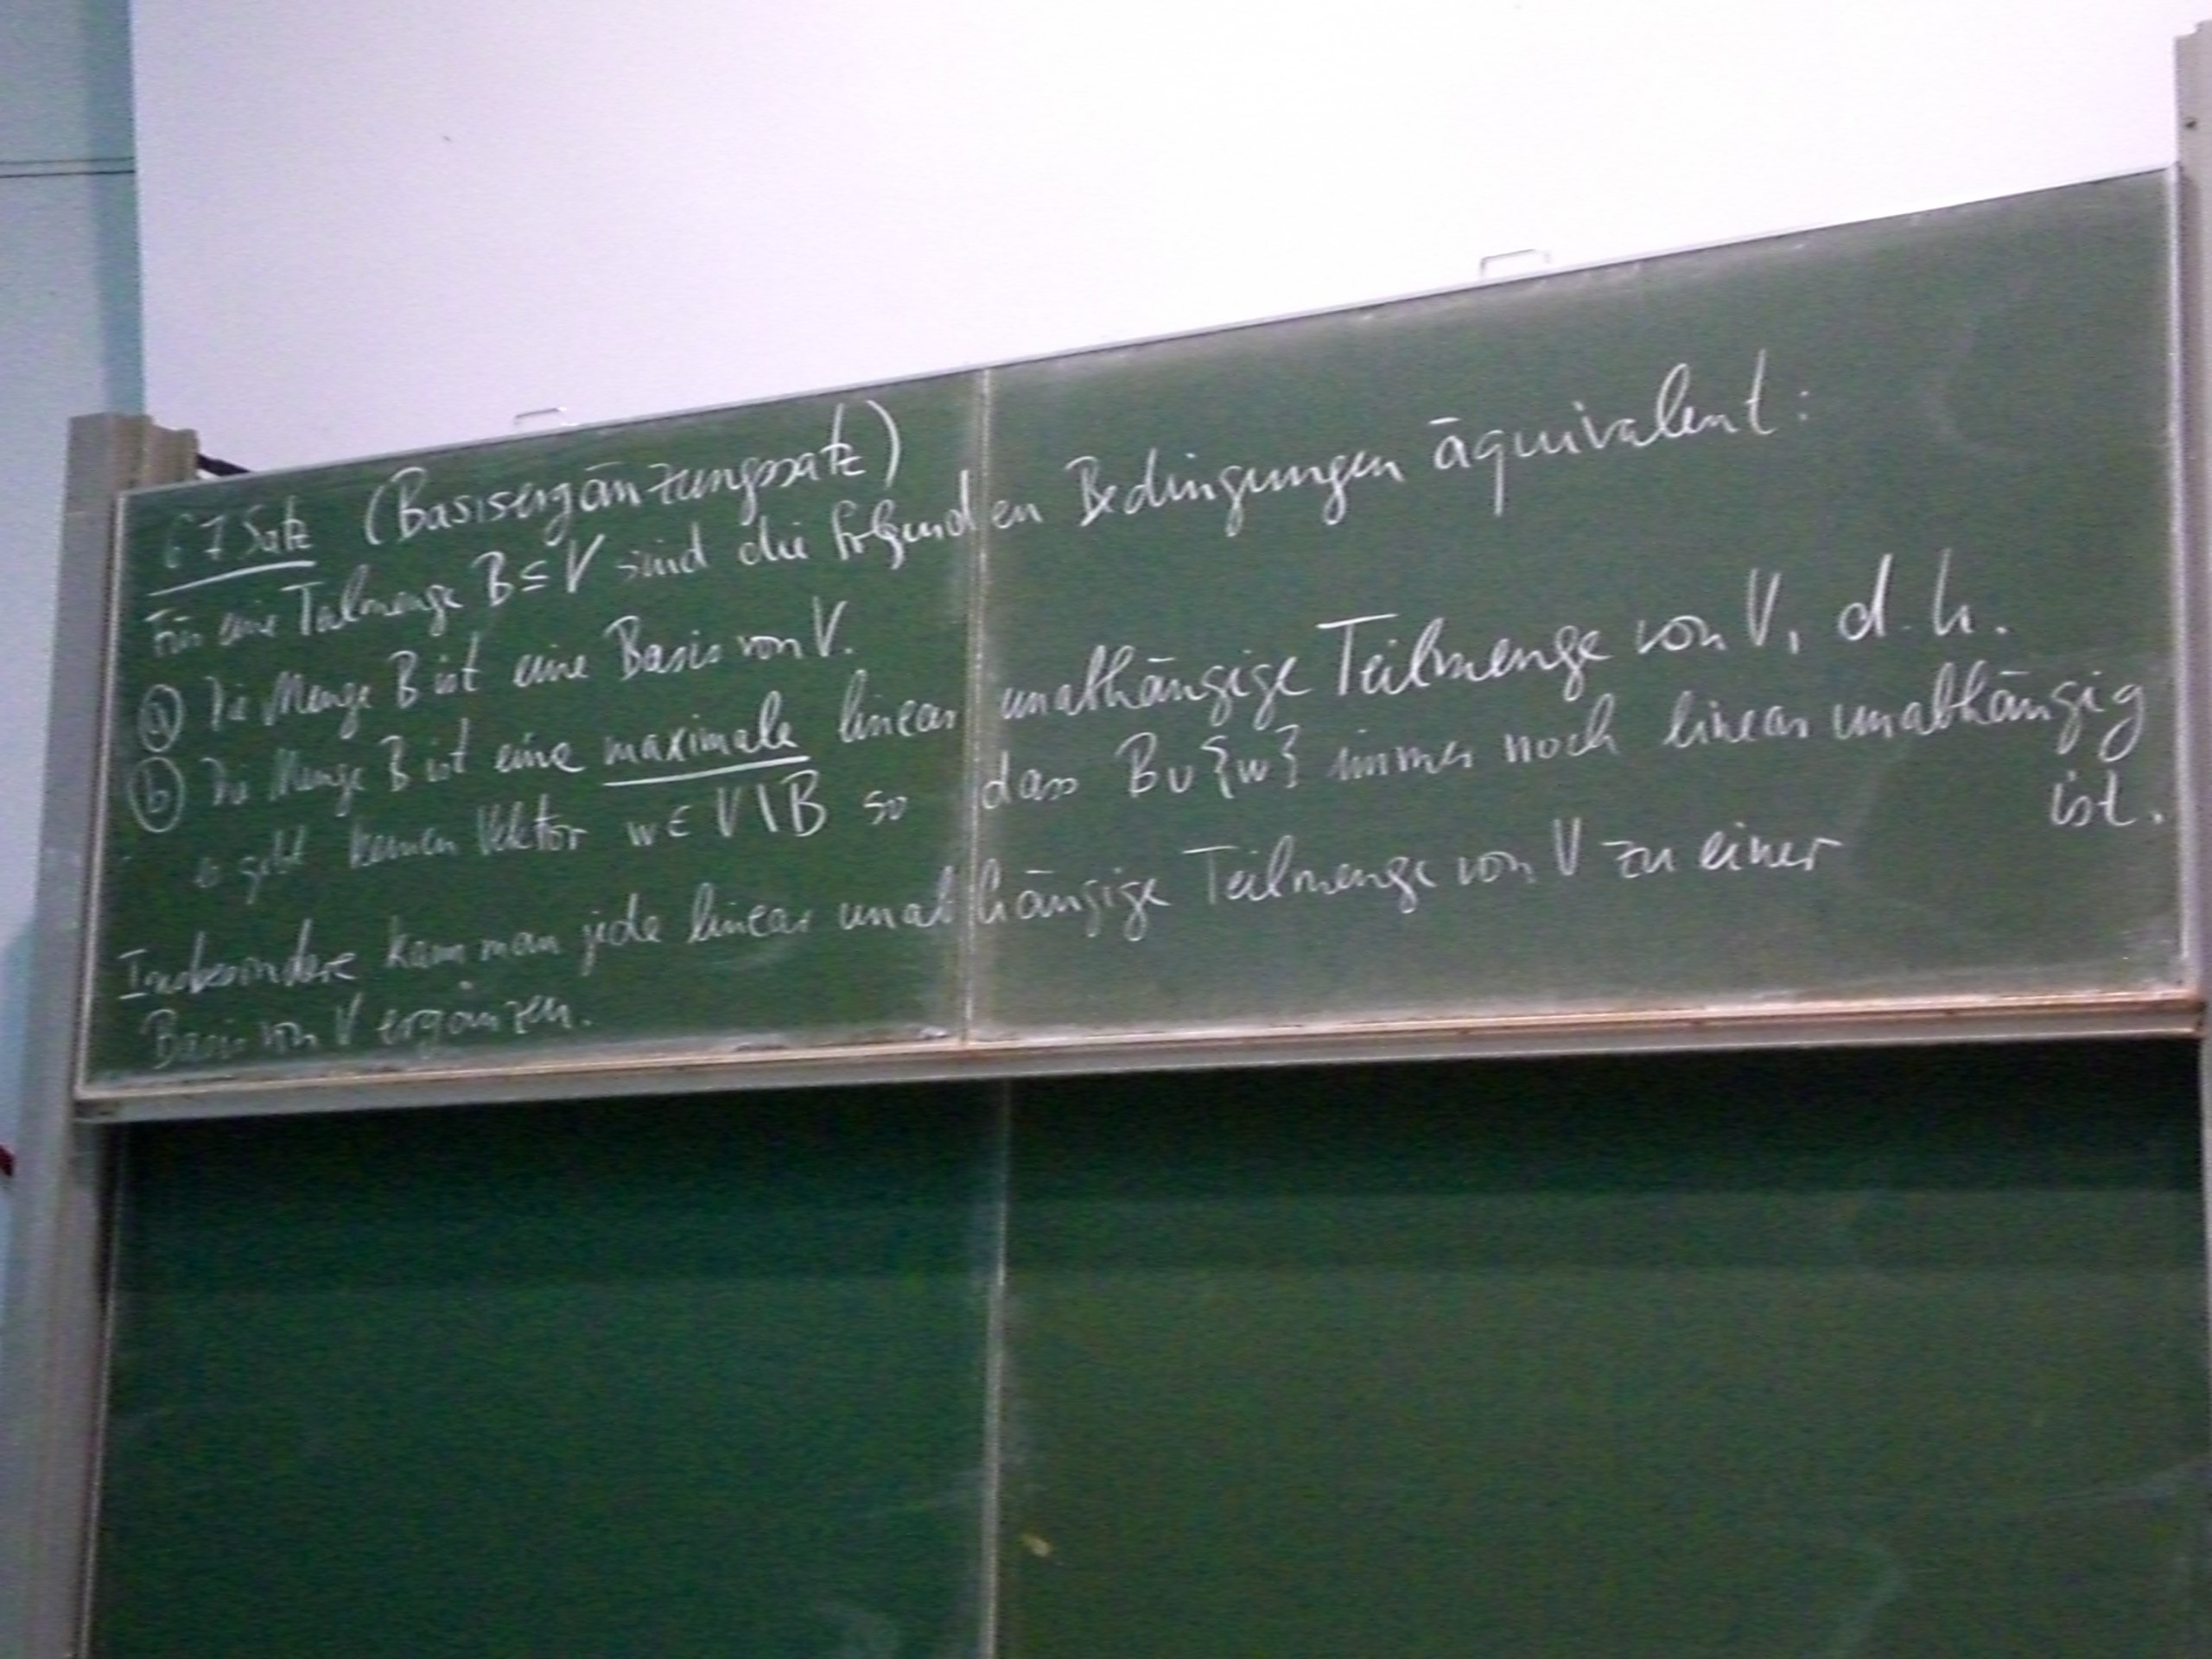 6 7 Satz (Basisergänzungssatz)
Für eine Teilmenge B ⊆ V sind die folgenden Bedingungen äquivalent:
ⓐ Die Menge B ist eine Basis von V.
ⓑ Die Menge B ist eine maximale linear unabhängige Teilmenge von V, d.h.
es gibt keinen Vektor w ∈ V \ B so dass B ∪ {w} immer noch linear unabhängig
ist.
Insbesondere kann man jede linear unabhängige Teilmenge von V zu einer
Basis von V ergänzen.